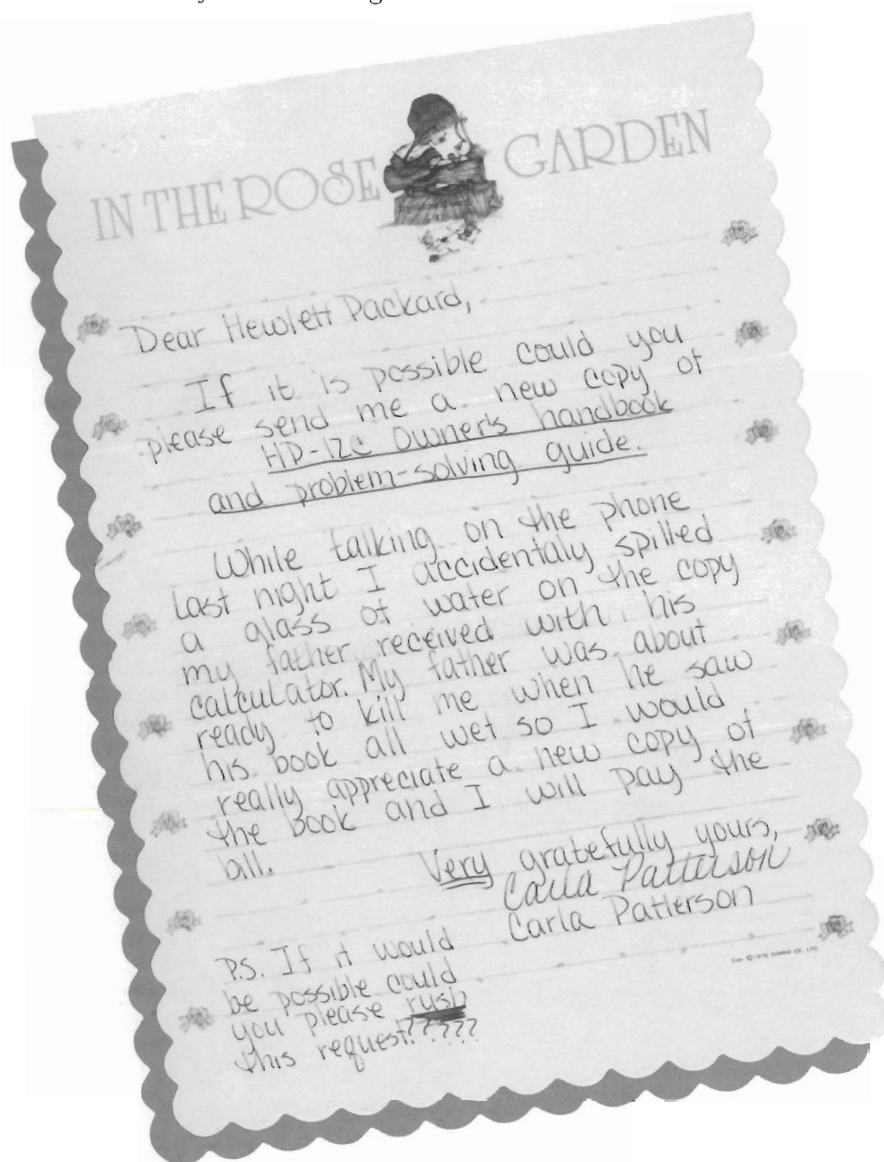 IN THE ROSE GARDEN
Dear Hewlett Packard,
If it is possible could you
please send me a new copy of
HP-12C Owner's handbook
and problem-solving guide.
While talking on the phone
last night I accidentaly spilled
a glass of water on the copy
my father received with his
calculator. My father was about
ready to kill me when he saw
his book all wet so I would
really appreciate a new copy of
the book and I will pay the
bill.
Very gratefully yours,
Carla Patterson
Carla Patterson
P.S. If it would
be possible could
you please rush
this request?????